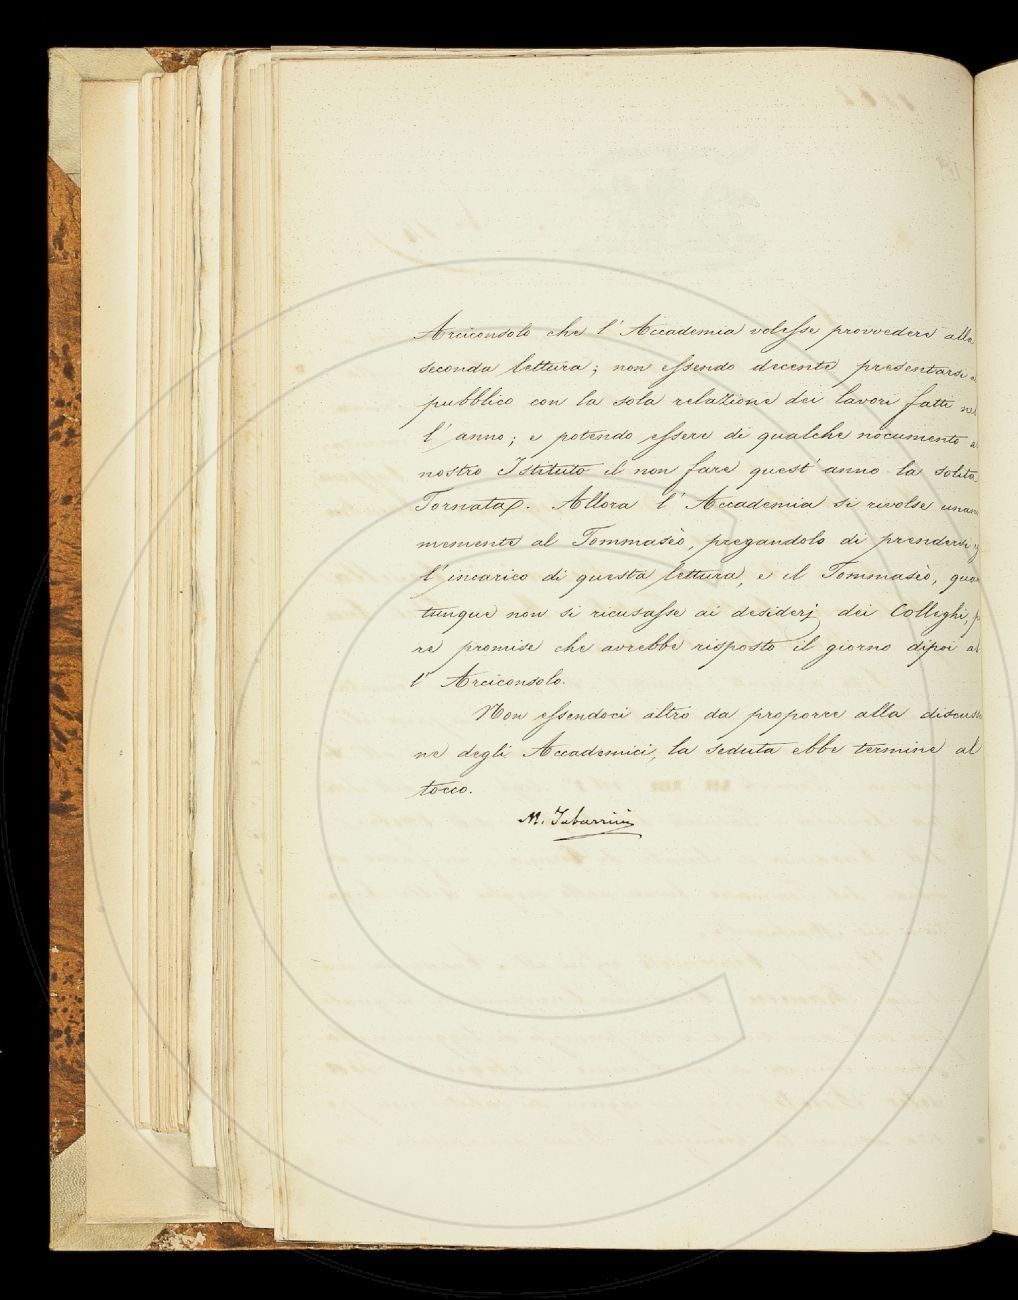 Arciconsolo che l' Accademia volesse provvedere alla
seconda lettura; non essendo decente presentarsi a
pubblico con la sola relazione dei lavori fatti nel
l' anno; e potendo essere di qualche nocumento a
nostro Istituto il non fare quest' anno la solita
Tornata. Allora l' Accademia si rivolse unani
memente al Tommasèo, pregandolo di prendersi
l' incarico di questa lettura, e il Tommasèo, quan
tunque non si ricusasse ai desiderj dei Colleghi, pu
re promise che avrebbe risposto il giorno dipoi al
l' Arciconsolo.
Non essendoci altro da proporre alla discussio
ne degli Accademici, la seduta ebbe termine al
tocco.
M. Tabarrini